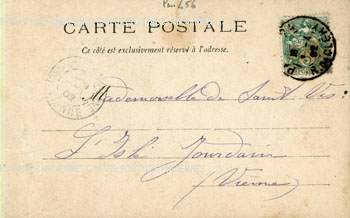 Pau L56
CARTE POSTALE
Ce côté est exclusivement réservé à l'adresse.
Mademoiselle de Saint Vis
L'Isle Jourdain
(Vienne)